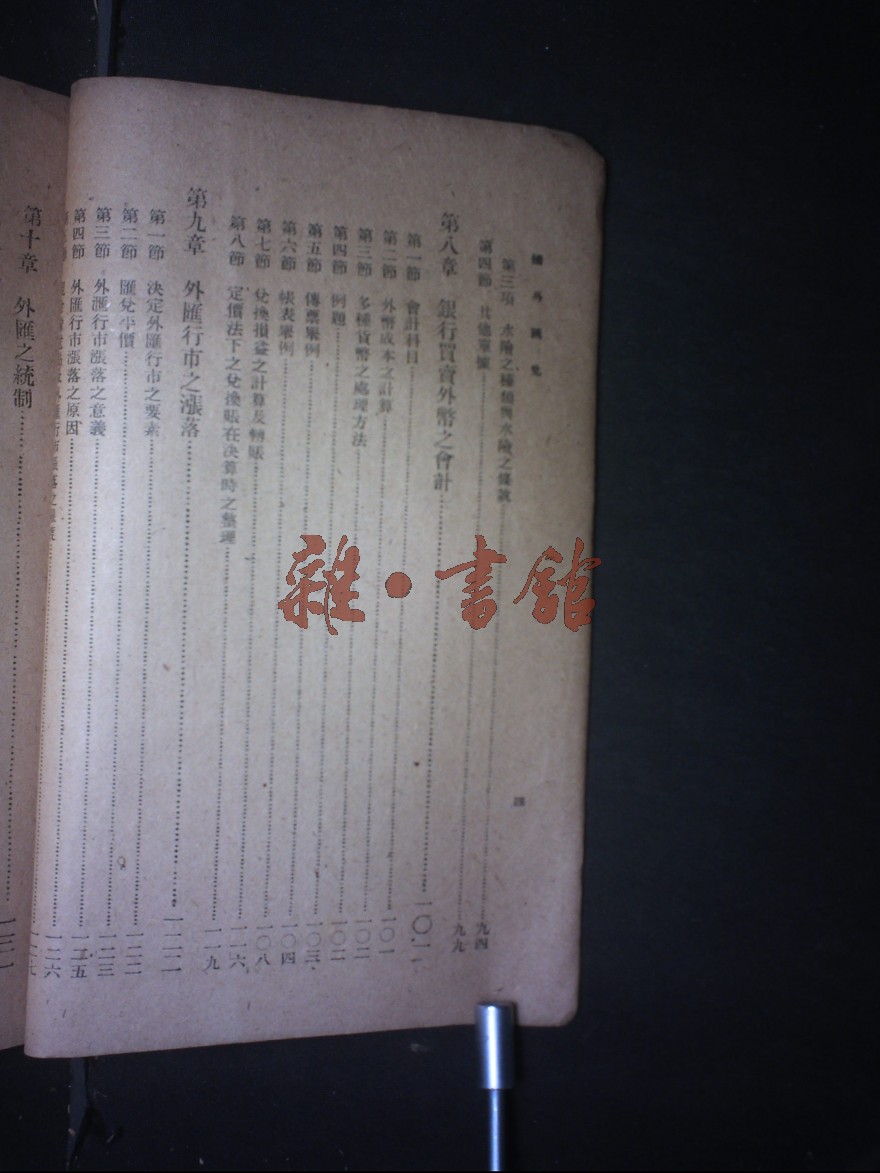 國外匯兌
四
第三項 水險之種類與水險之條款……九四
第四節 其他單據……九九
第八章 銀行買賣外幣之會計……一〇一
第一節 會計科目……一〇一
第二節 外幣成本之計算……一〇一
第三節 多種貨幣之處理方法……一〇二
第四節 例題……一〇二
第五節 傳票舉例……一〇三
第六節 帳表舉例……一〇四
第七節 兌換損益之計算及轉賬……一〇八
第八節 定價法下之兌換賬在決算時之整理……一一六
……一一九
第九章 外匯行市之漲落……一二一
第一節 決定外匯行市之要素
第二節 匯兌平價……一二二
第三節 外匯行市漲落之意義……一二三
第四節 外匯行市漲落之原因……一二五
……一二六
……一二七
第十章 外匯之統制……一三一
雜·書館